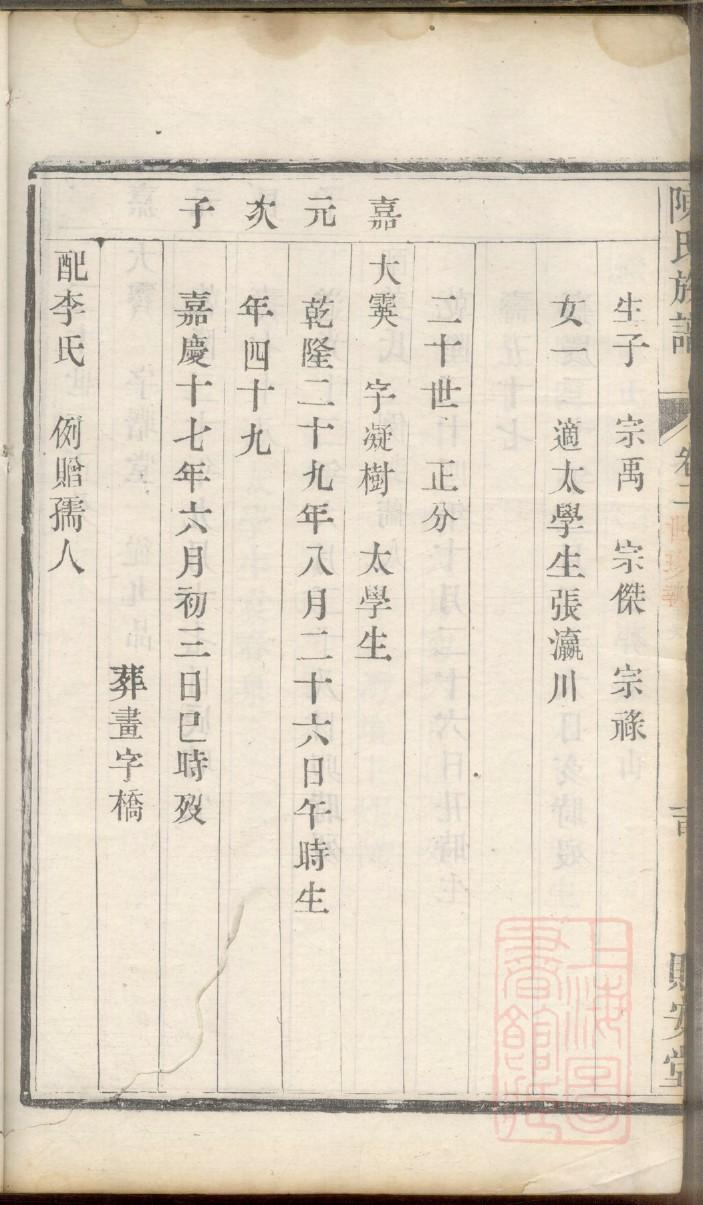 陳氏族譜 卷二 世 貽安堂
生子 宗禹 宗傑 宗祿
女一 適太學生張瀛川
二十世 正分
嘉元次子
大霙 字凝樹 太學生
乾隆二十九年八月二十六日午時生
年四十九
嘉慶十七年六月初三日巳時歿
葬畫字橋
配李氏 例贈孺人
上海圖書館藏